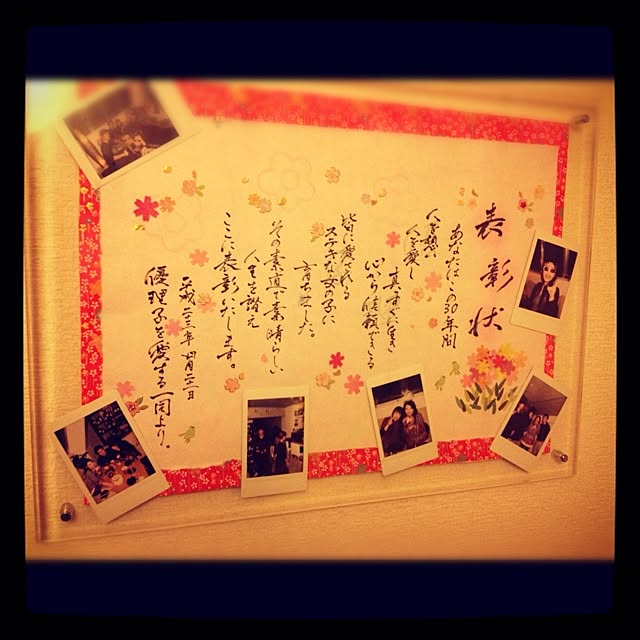 表彰状
あなたはこの30年間
人を想い
人を愛し
真すぐに生き
心から信頼できる
皆に愛される
ステキな女の子に
育ちました。
その素直で素晴らしい
人生を讃え
ここに表彰いたします。
平成二三年四月二二日
優理子を愛する一同より。